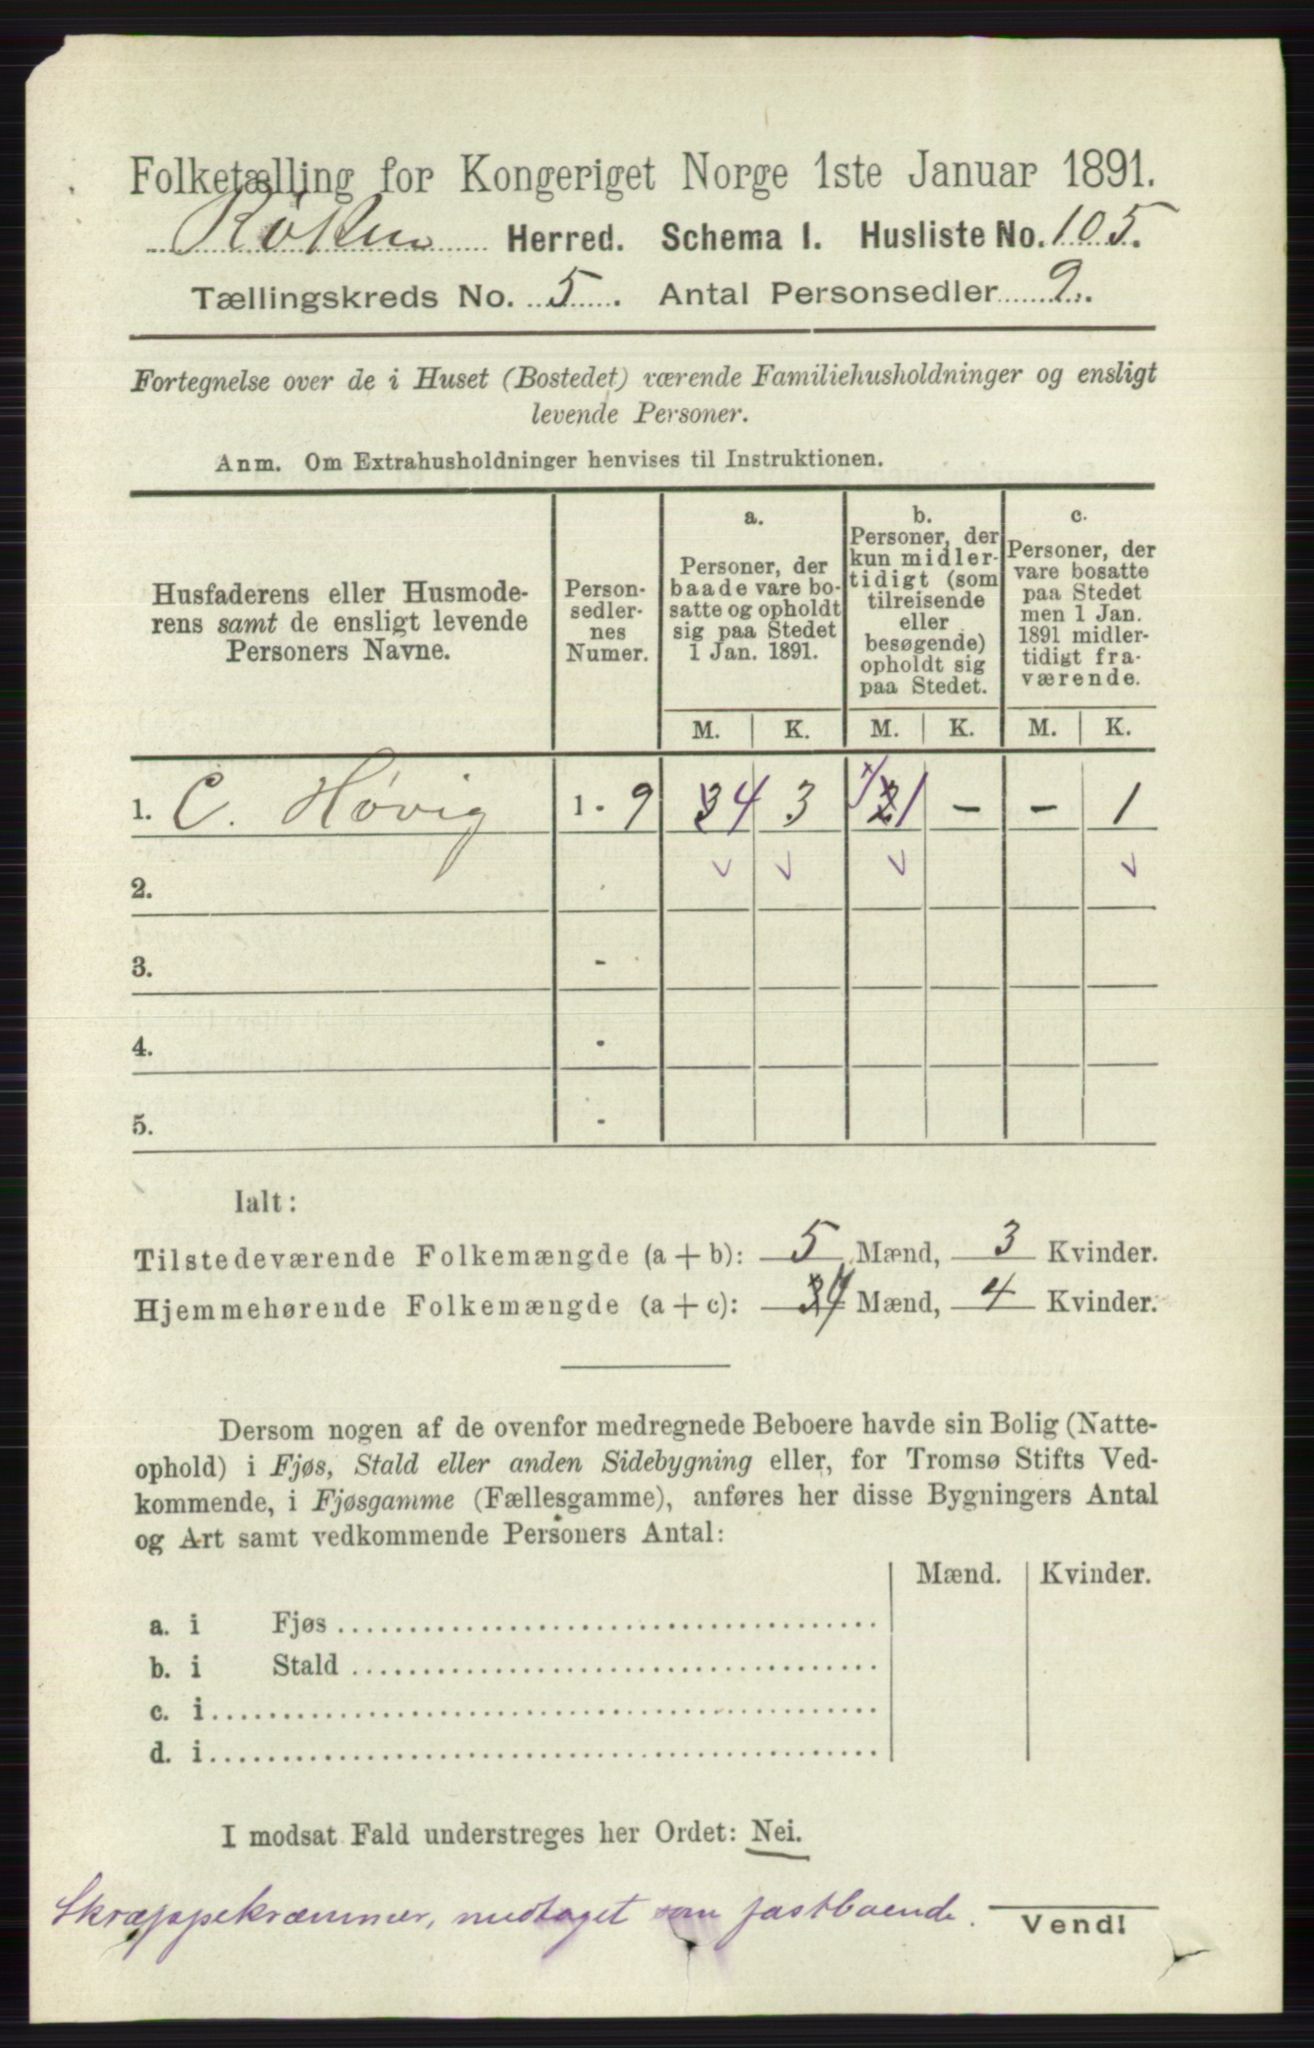 Folketælling for Kongeriget Norge 1ste Januar 1891.
Røken Herred. Schema I. Husliste No. 105.
Tællingskreds No. 5. Antal Personsedler 9.
Fortegnelse over de i Huset (Bostedet) værende Familiehusholdninger og ensligt
levende Personer.
Anm. Om Extrahusholdninger henvises til Instruktionen.
Husfaderens eller Husmode-
rens samt de ensligt levende
Personers Navne.
Person-
sedler-
nes
Numer.
a.
Personer, der
baade vare bo-
satte og opholdt
sig paa Stedet
1 Jan. 1891.
b.
Personer, der
kun midler-
tidigt (som
tilreisende
eller
besøgende)
opholdt sig
paa Stedet.
c.
Personer, der
vare bosatte
paa Stedet
men 1 Jan.
1891 midler-
tidigt fra-
værende.
M. K. M. K. M. K.
1. C. Høvig 1 - 9 4 3 1 - - 1
2.
3. -
4. -
5. -
Ialt:
Tilstedeværende Folkemængde (a + b): 5 Mænd, 3 Kvinder.
Hjemmehørende Folkemængde (a + c): 4 Mænd, 4 Kvinder.
Dersom nogen af de ovenfor medregnede Beboere havde sin Bolig (Natte-
ophold) i Fjøs, Stald eller anden Sidebygning eller, for Tromsø Stifts Ved-
kommende, i Fjøsgamme (Fællesgamme), anføres her disse Bygningers Antal
og Art samt vedkommende Personers Antal:
Mænd. Kvinder.
a. i Fjøs
b. i Stald
c. i
d. i
I modsat Fald understreges her Ordet: Nei.
Skræppekræmmer, medtaget som fastboende.
Vend!